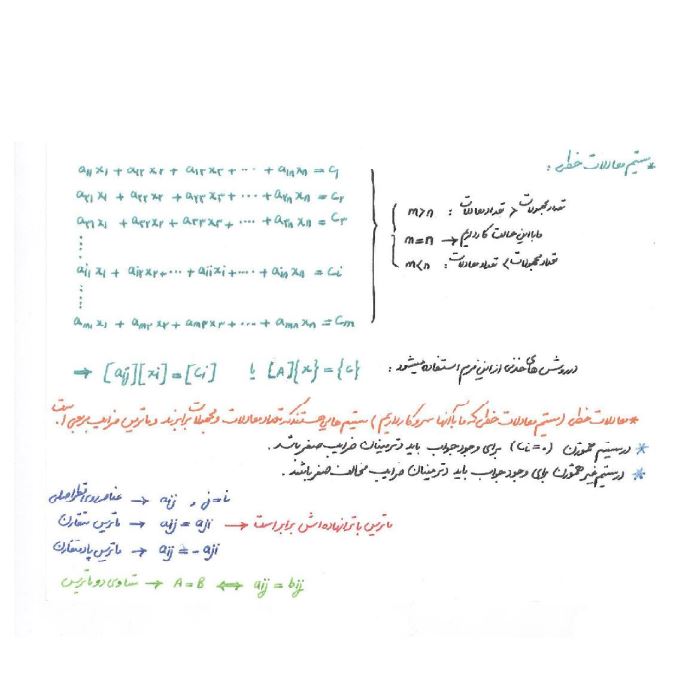 * سیستم معادلات خطی:
a₁₁x₁ + a₁₂x₂ + a₁₃x₃ + ... + a₁ₙxₙ = c₁
a₂₁x₁ + a₂₂x₂ + a₂₃x₃ + ... + a₂ₙxₙ = c₂
a₃₁x₁ + a₃₂x₂ + a₃₃x₃ + ... + a₃ₙxₙ = c₃
aᵢ₁x₁ + aᵢ₂x₂ + ... + aᵢᵢxᵢ + ... + aᵢₙxₙ = cᵢ
aₘ₁x₁ + aₘ₂x₂ + aₘ₃x₃ + ... + aₘₙxₙ = cₘ
m>n : تعداد مجهولات < تعداد معادلات
m=n → ما با این حالت کار داریم
m<n : تعداد مجهولات > تعداد معادلات
در روش های عددی از این فرم استفاده میشود: [A]{x}={c} یا [aij][xi]=[ci] ⇒
* معادلات خطی (سیستم معادلات خطی که ما با آنها سر و کار داریم) سیستم هایی هستند که تعداد معادلات و مجهولات برابرند و ماتریس ضرایب مربعی است.
* در سیستم همگن (ci=0) برای وجود جواب باید دترمینان ضرایب صفر باشد.
* در سیستم غیر همگن برای وجود جواب باید دترمینان ضرایب مخالف صفر باشد.
عناصر روی قطر اصلی → aij , j=i
ماتریس متقارن → aij = aji → ماتریس با ترانهاده اش برابر است
ماتریس پادمتقارن → aij = -aji
تساوی دو ماتریس → A=B ⇔ aij = bij